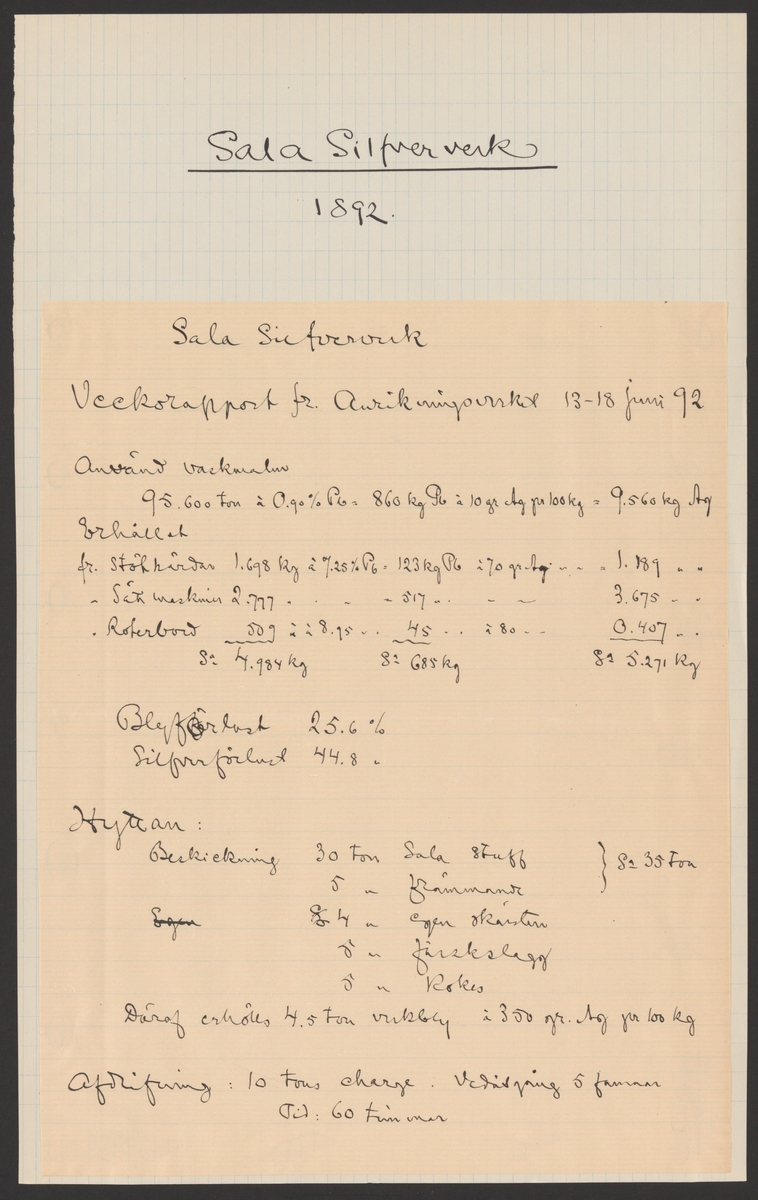 Sala Silfververk
1892.
Sala Silfververk
Veckorapport fr. Anrikningsverket 13-18 juni 92
Använd vaskmalm
95.600 ton à 0.90% Pb = 860 kg Pb à 10 gr Ag pr 100 kg = 9.560 kg Ag
Erhållet
fr. Stöthärdar 1.698 kg à 7.25% Pb = 123 kg Pb à 70 gr. Ag - - = 1.189 " "
" Sätt maskiner 2.777 " " " - 517 " " - - 3.675 " "
" Roterbord 509 " à 8.95 " " 45 " " à 80 - - 0.407 " "
Sa 4.984 kg Sa 685 kg Sa 5.271 kg
Blyförlust 25.6 %
Silfverförlust 44.8 "
Hyttan:
Beskickning 30 ton Sala stuff } Sa 35 ton
5 " främmande
Egen 4 " egen skärsten
5 " färskslagg
5 " Kokes
Däraf erhölls 4.5 ton verkbly à 350 gr. Ag pr 100 kg
Afdrifning: 10 tons charge. Vedåtgång 5 famnar
Tid: 60 timmar